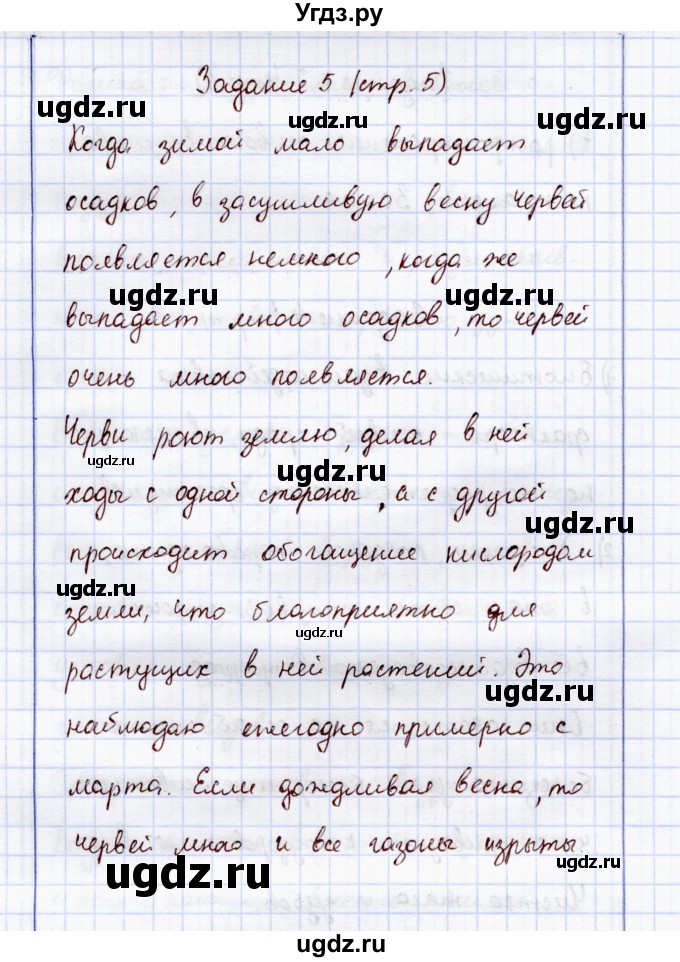 Угдз.ру
Задание 5 (стр. 5)
ugdz.ru
ugdz.ru
Когда зимой мало выпадает
осадков, в засушливую весну червей
ugdz.ru
появляется немного, когда же
ugdz.ru
ugdz.ru
выпадает много осадков, то червей
очень много появляется.
Черви роют землю, делая в ней
ugdz.ru
ugdz.ru
ходы с одной стороны, а с другой
ugdz.ru
происходит обогащение кислородом
ugdz.ru
земли, что благоприятно для
ugdz.ru
растущих в ней растений. Это
ugdz.ru
наблюдаю ежегодно примерно с
марта. Если дождливая весна, то
червей много и все газоны изрыты.
ugdz.ru
ugdz.ru
ugdz.ru